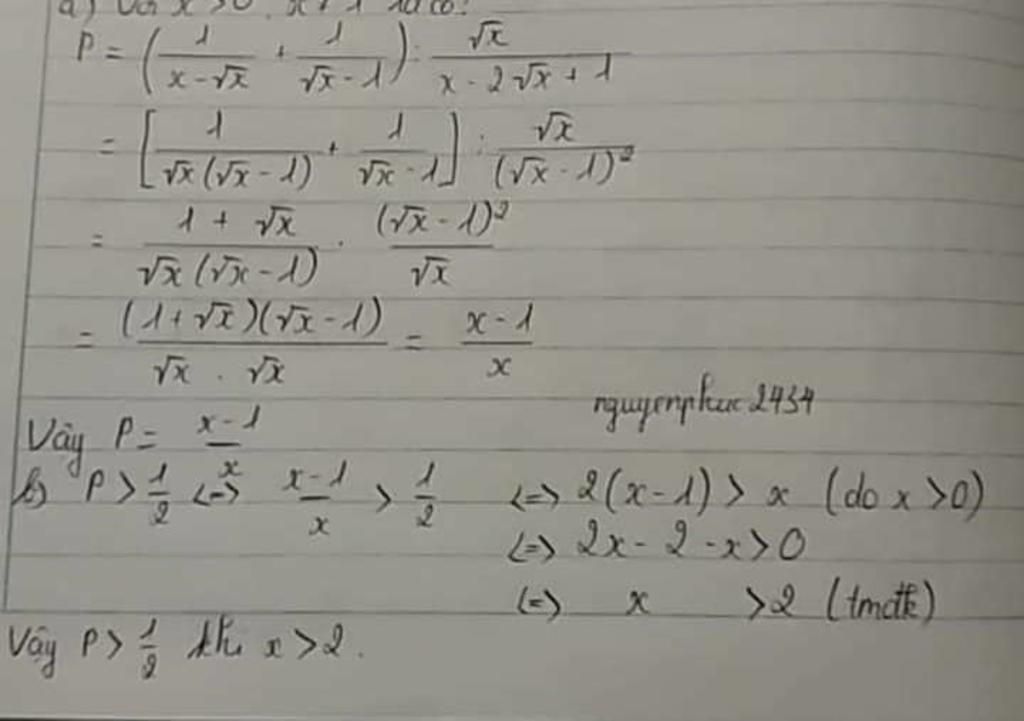 a) Với x > 0, x ≠ 1 ta có:
P = (1/(x - √x) + 1/(√x - 1)) : √x/(x - 2√x + 1)
= [1/(√x(√x - 1)) + 1/(√x - 1)] : √x/(√x - 1)²
= (1 + √x)/(√x(√x - 1)) · (√x - 1)²/√x
= (1 + √x)(√x - 1)/(√x . √x) = (x - 1)/x
nguyenphuc2434
Vậy P = (x - 1)/x
b) P > 1/2 <=> (x - 1)/x > 1/2 <=> 2(x - 1) > x (do x > 0)
<=> 2x - 2 - x > 0
<=> x > 2 (tmđk)
Vậy P > 1/2 khi x > 2.